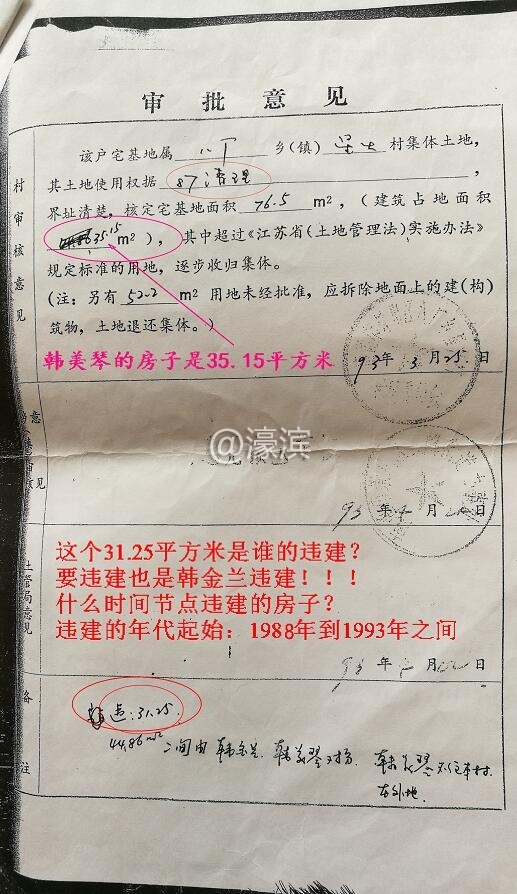 审批意见
该户宅基地属 八厂 乡(镇) 星火 村集体土地,
其土地使用权据 87清理 ,
界址清楚,核定宅基地面积 76.5 m²,(建筑占地面积
35.15 m²),其中超过《江苏省(土地管理法)实施办法》
规定标准的用地,逐步收归集体。
(注:另有 52.2 m² 用地未经批准,应拆除地面上的建(构)
筑物,土地退还集体。)
村审核意见
韩美琴的房子是35.15平方米
93年 3月25日
@濠滨
意见
93年 月 日
这个31.25平方米是谁的违建?
要违建也是韩金兰违建!!!
什么时间节点违建的房子?
违建的年代起始:1988年到1993年之间
土管局意见
93年 月 日
备注
违:31.25
44.86m²
二间由韩金兰、韩美琴对扮 韩美琴不住本村
在外地.